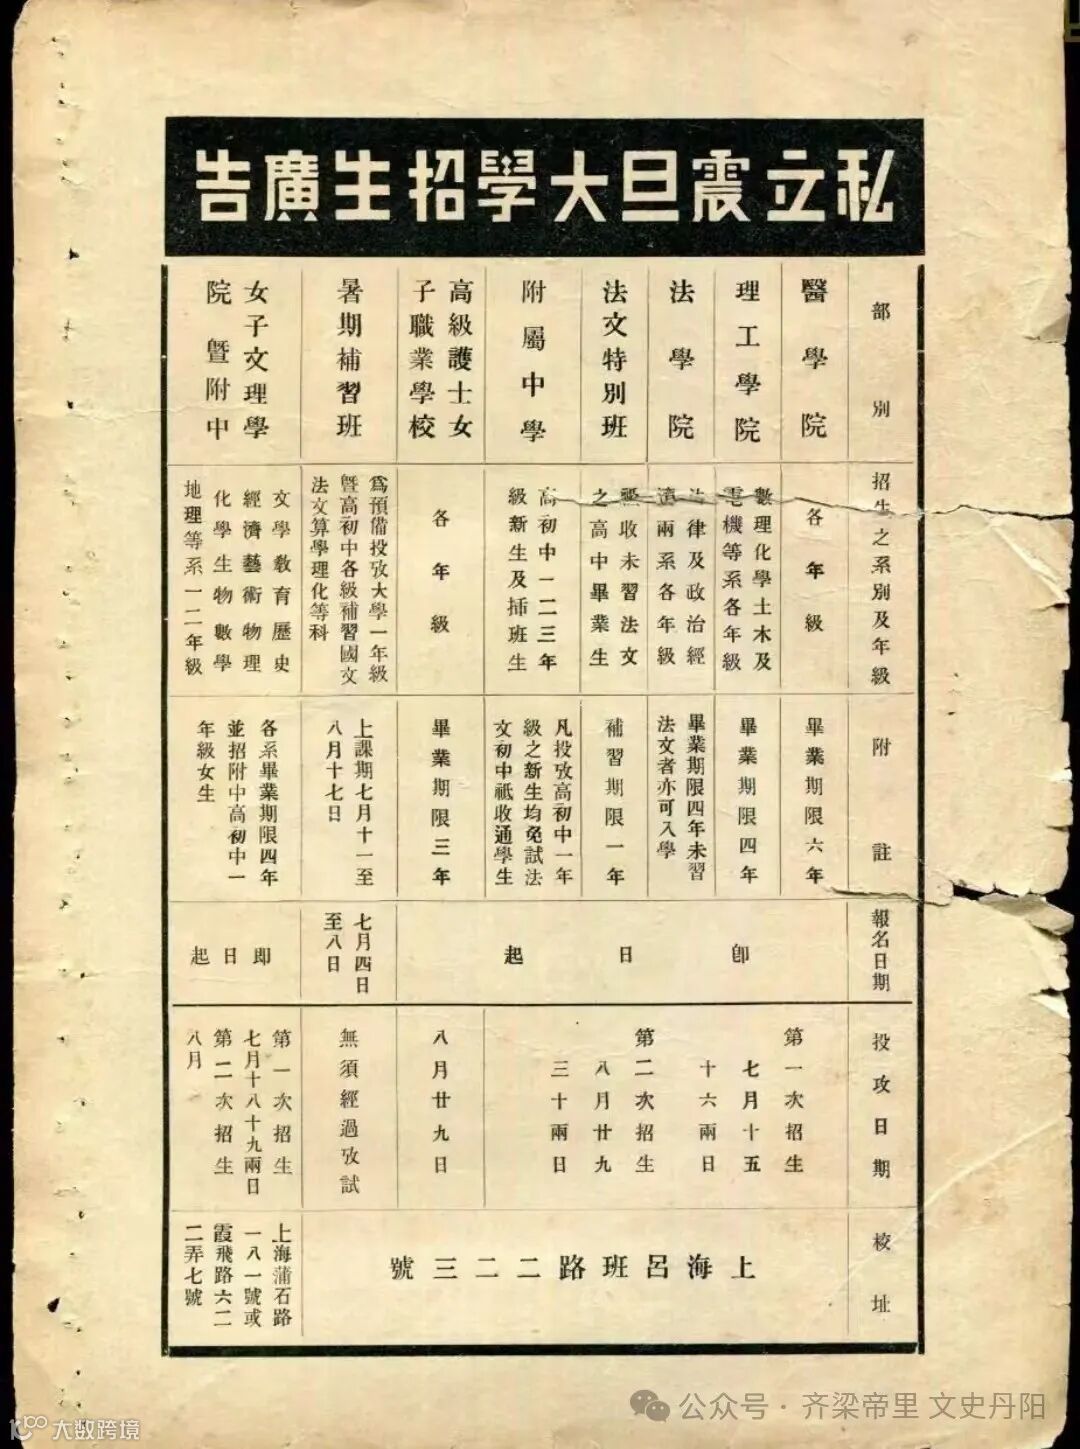 私立震旦大學招生廣告
部別
醫學院
理工學院
法學院
法文特別班
附屬中學
高級護士女
子職業學校
暑期補習班
女子文理學
院暨附中
招生之系別及年級
各年級
數理化學土木及
電機等系各年級
法律及政治經
濟兩系各年級
祗收未習法文
之高中畢業生
高初中一二三年
級新生及插班生
各年級
爲預備投攷大學一年級
暨高初中各級補習國文
法文算學理化等科
文學教育歷史
經濟藝術物理
化學生物數學
地理等系一二年級
附註
畢業期限六年
畢業期限四年
畢業期限四年未習
法文者亦可入學
補習期限一年
凡投攷高初中一年
級之新生均免試法
文初中祗收通學生
畢業期限三年
上課期七月十一至
八月十七日
各系畢業期限四年
並招附中高初中一
年級女生
報名日期
即日起
七月四日
至八日
即日起
投攷日期
第一次招生
七月十五
十六兩日
第二次招生
八月廿九
三十兩日
八月廿九日
無須經過攷試
第一次招生
七月十八十九兩日
第二次招生
八月
校址
上海呂班路二二三號
上海蒲石路
一八一號或
霞飛路六二
二弄七號
公众号·齐梁帝里 文史丹阳
大数跨境